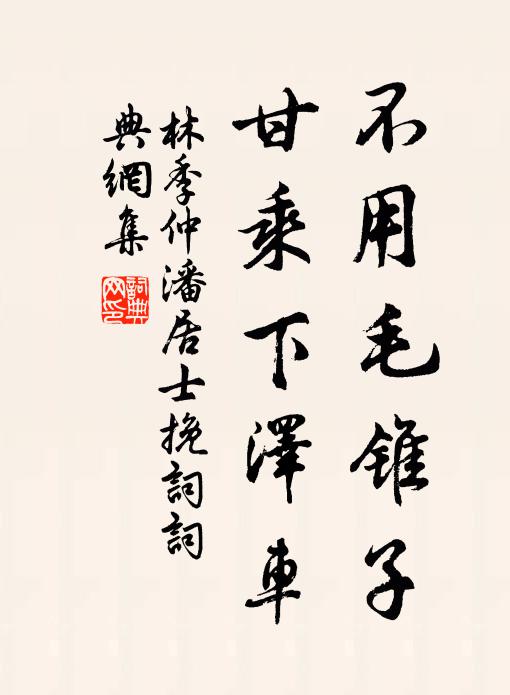 不用毛錐子
甘乘下澤車
林季仲潘居士挽詞詞
典網集
詞典
网印